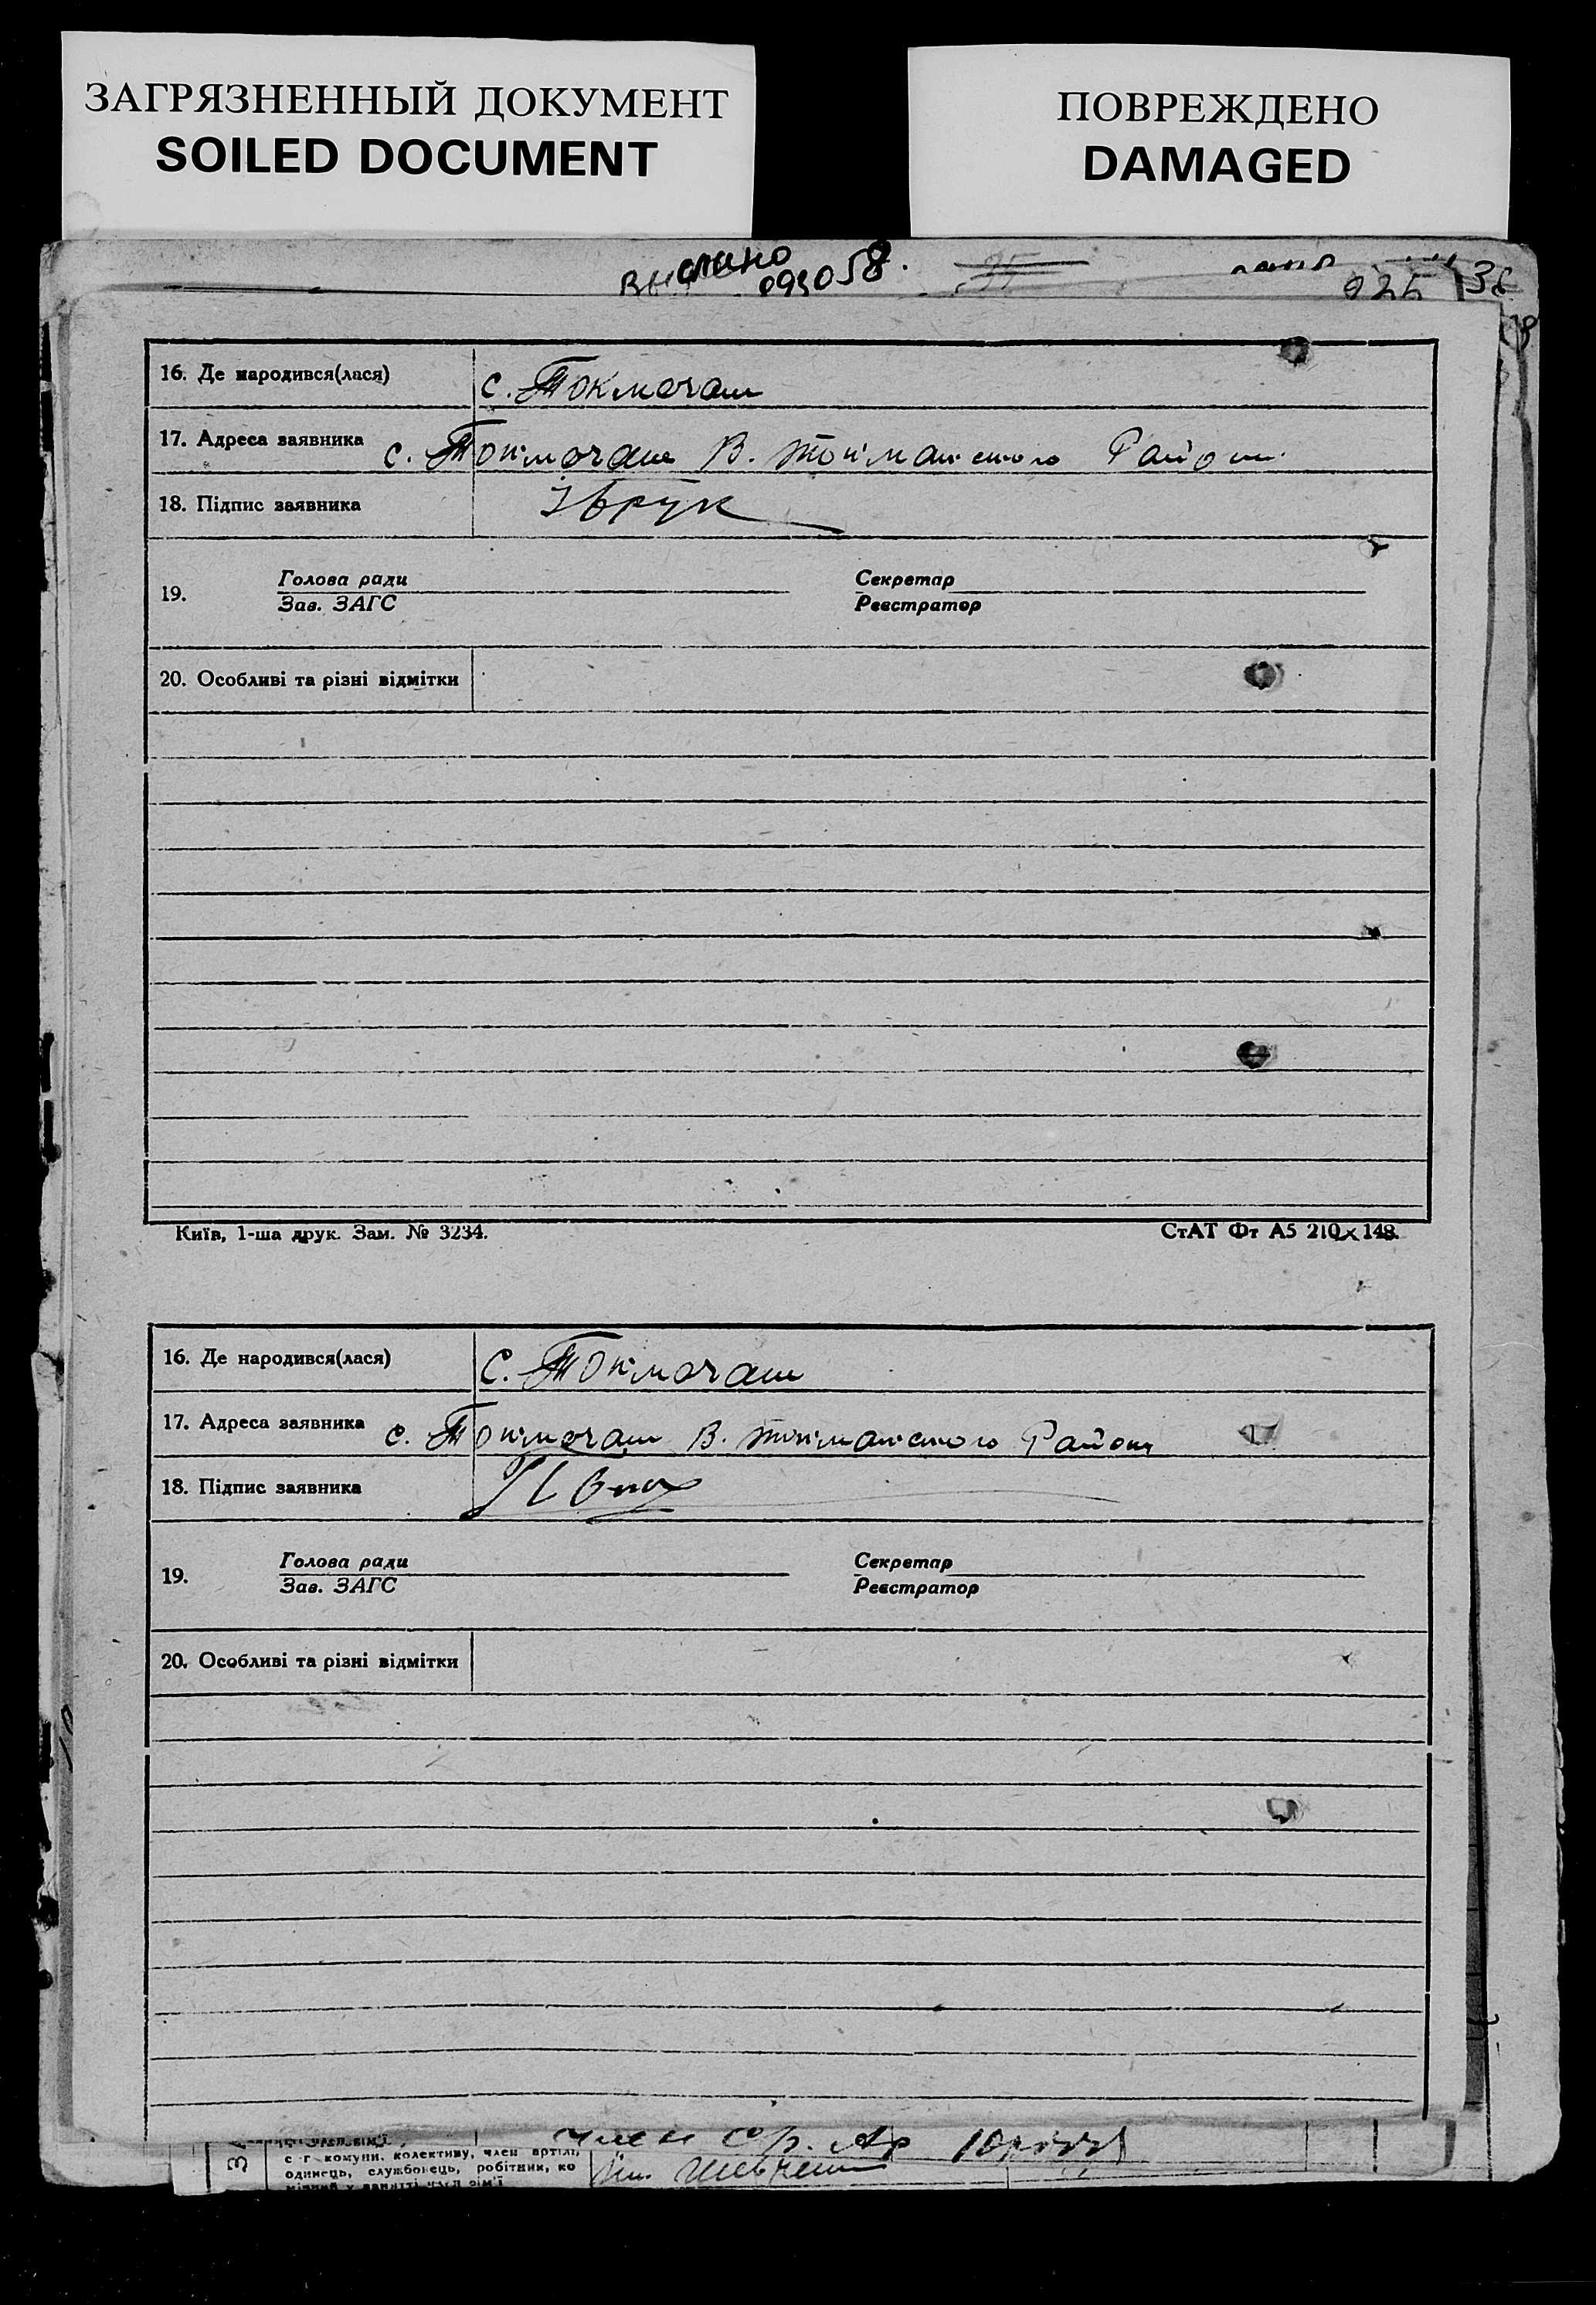 ЗАГРЯЗНЕННЫЙ ДОКУМЕНТ
SOILED DOCUMENT
ПОВРЕЖДЕНО
DAMAGED
058.
35
025 36
16. Де народився(лася) с. Токмачан
17. Адреса заявника с. Токмачан В. Токманського Району
18. Підпис заявника
19. Голова ради Секретар
Зав. ЗАГС Реєстратор
20. Особливі та різні відмітки
Київ, 1-ша друк. Зам. № 3234. СтАТ Фт А5 210×148.
16. Де народився(лася) с. Токмачан
17. Адреса заявника с. Токмачан В. Токманського Району
18. Підпис заявника
19. Голова ради Секретар
Зав. ЗАГС Реєстратор
20. Особливі та різні відмітки
член
с-г комуни, колективу, член артілі,
одинець, службовець, робітник, ко